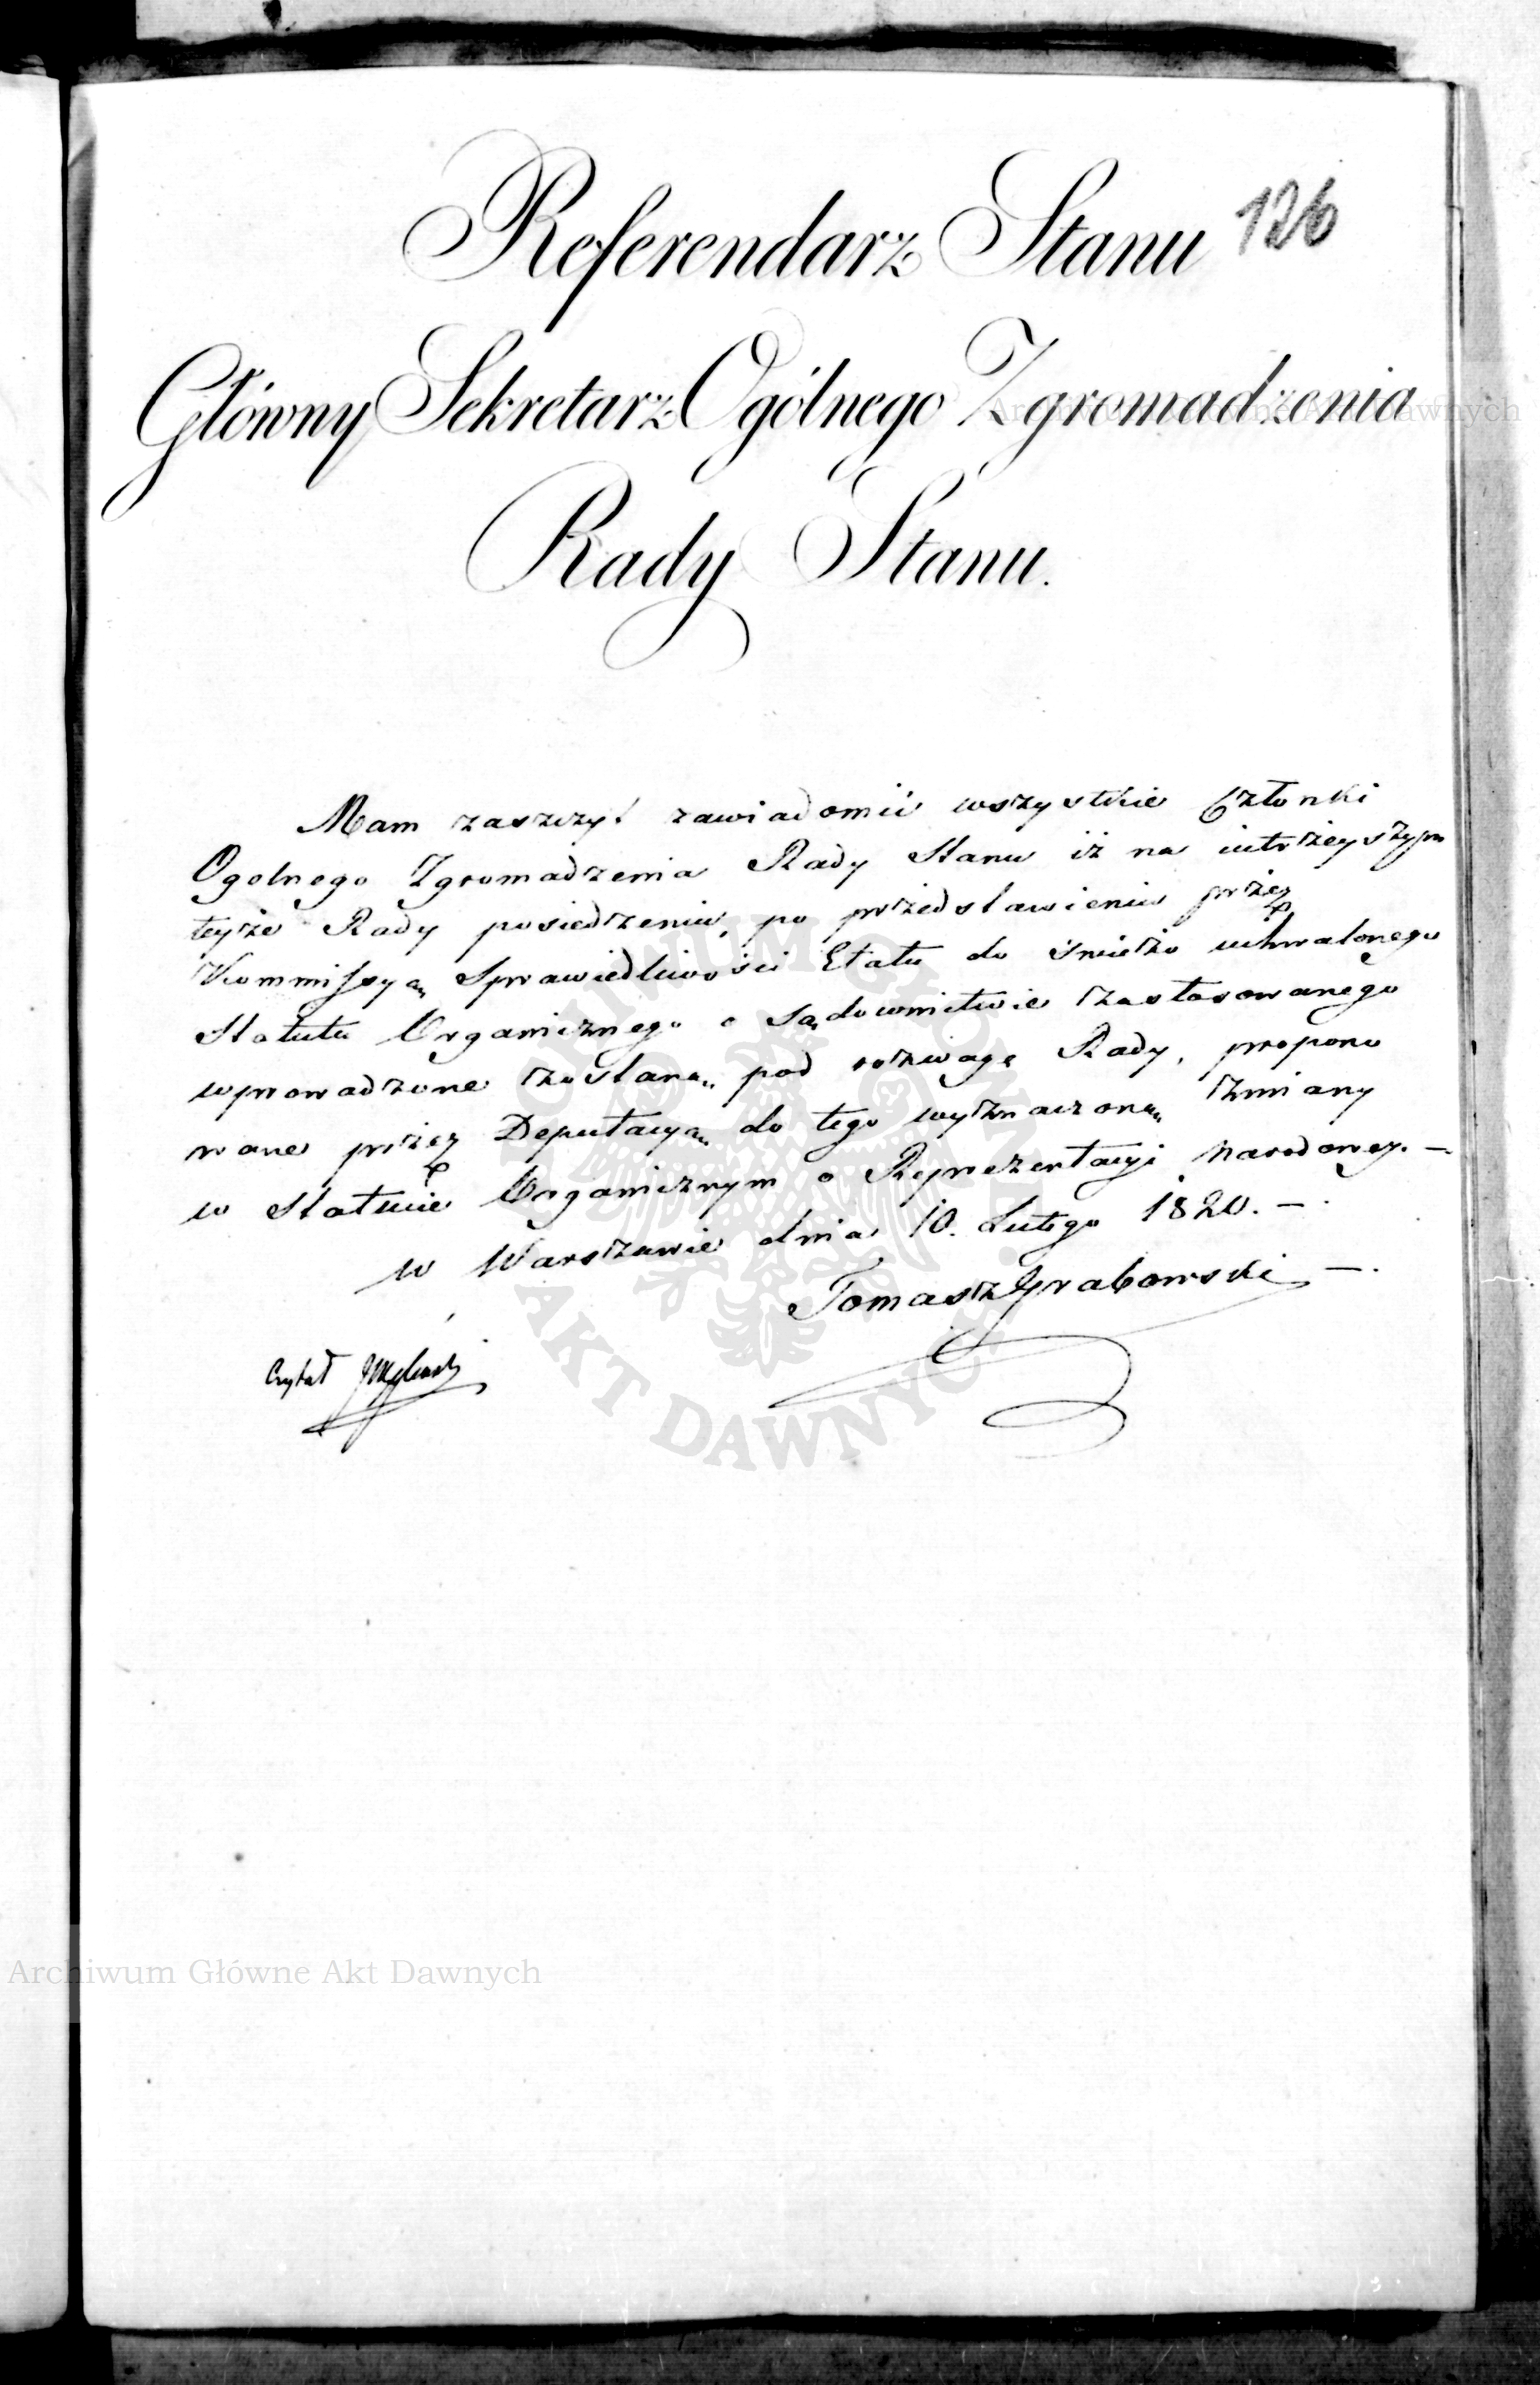 Referendarz Stanu 126
Główny Sekretarz Ogólnego Zgromadzenia
Rady Stanu.
Mam zaszczyt zawiadomić wszystkie Członki
Ogolnego Zgromadzenia Rady Stanu iż na iutrzeyszym
teyże Rady posiedzeniu, po przedstawieniu przez
Kommissyą Sprawiedliwości Etatu do świeżo uchwalonego
Statutu Organicznego o Sądownictwie zastosowanego
wprowadzone zostaną pod rozwagę Rady, propono
wane przez Deputacyą do tego wyznaczoną zmiany
w Statucie Organicznym o Reprezentacyi Narodowey. —
w Warszawie dnia 10. Lutego 1820. —
Tomasz Grabowski —
Czytał
Archiwum Główne Akt Dawnych
ARCHIWUM GŁÓWNE AKT DAWNYCH
Archiwum Główne Akt Dawnych